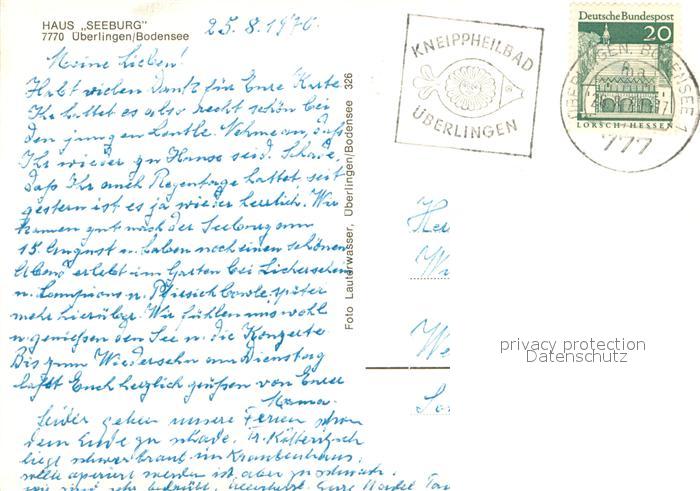 HAUS „SEEBURG"
7770 Überlingen/Bodensee
25.8.1970.
Meine Lieben!
Habt vielen Dank für Eure Karte
Ihr hattet es also recht schön bei
den jungen Leutle. Nehme an, daß
Ihr wieder zu Hause seid. Schade,
daß Ihr auch Regentage hattet, seit
gestern ist es ja wieder herrlich. Wir
kamen gut nach der Seeburg am
15. August u. haben noch einen schönen
Abend erlebt im Garten bei
u. Lampions u. Pfirsichbowle. Später
mehr hierüber. Wir fühlen uns wohl
u. genießen den See u. die Konzerte
Bis zum Wiedersehn am Dienstag
laßt Euch herzlich grüßen von Eurer
Mama.
Leider gehen unsere Ferien schon
dem Ende zu schade. Fr.
liegt schwer krank im Krankenhaus,
sollte operiert werden ist aber zu schwach.
wir sind sehr betrübt.
Foto Lauterwasser, Überlingen/Bodensee 326
KNEIPPHEILBAD
ÜBERLINGEN
Deutsche Bundespost
20
LORSCH/HESSEN
ÜBERLINGEN, BODENSEE 1
777
privacy protection
Datenschutz